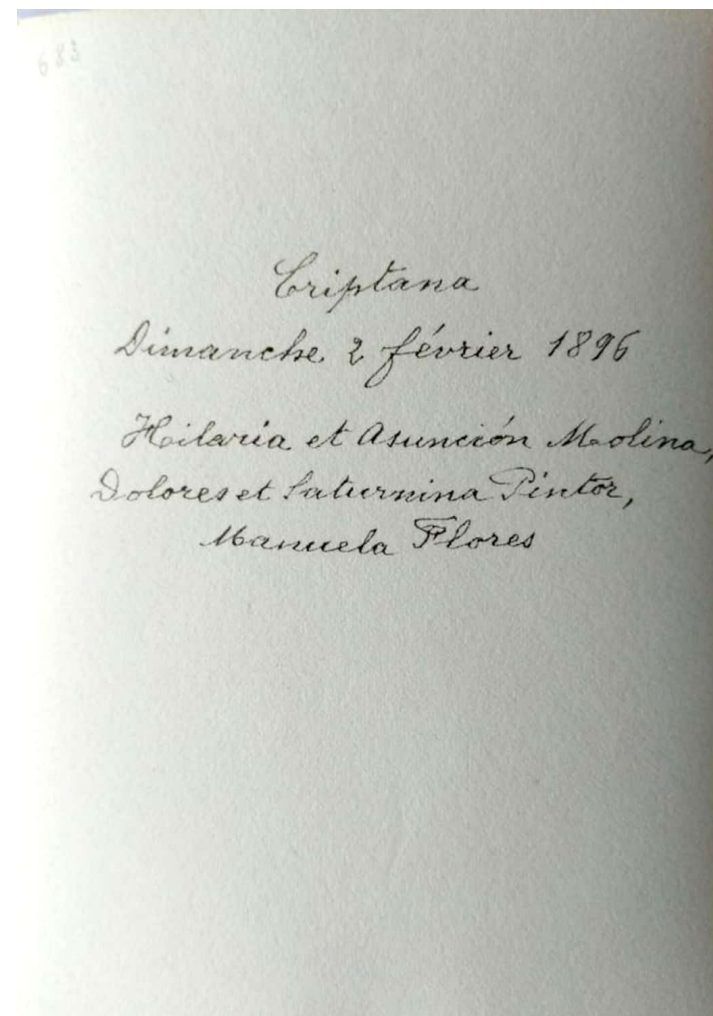 683
Criptana
Dimanche 2 février 1896
Hilaria et Asunción Molina,
Dolores et Saturnina Pintor,
Manuela Flores